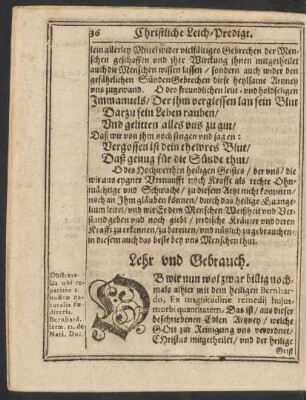 36 Christliche Leich-Predigt.
lein allerley Mittel wider vielfältiges Gebrechen der Men-
schen geschaffen vnd ihre Wirckung ihnen mitgetheilet
auch die Menschen wissen lassen / sondern auch wider das
gefährlichen SündenGebrechen diese heylsame Artzney
vns zugewand. O des freundlichen leut- vnd holdseligen
Immanuels / Der ihm vergiessen lan sein Blut
Darzu sein Leben rauben /
Vnd gelitten alles vns zu gut /
Daß wir von ihm noch singen vnd sagen:
Vergossen ist dein thewres Blut /
Daß genug für die Sünde thut /
O des Hochwerthen heiligen Geistes / der vns / die
wir aus eygner Vernunfft noch Krafft als rechte Ohn-
mächtige vnd Schwache / zu diesem Artzt nicht kommen /
noch an Ihm gläuben können / durch das heilige Euange-
lium leitet / vnd mit Erdem Menschen Weißheit vnd Ver-
stand geben vnd noch giebt / irrdische Kräuter vnd deren
Krafft zu erkennen / zu bereiten / vnd nützlich zugebrauchen /
in diesem auch das beste bey vns Menschen thut.
Lehr vnd Gebrauch.
Doctrina-
lis ubi re-
petitio
nostræ na-
turalis fœ-
ditatis.
Bernhard.
serm. 11. de
Nati. Dni.
OB wir nun wol zwar billig noch-
mals alhier mit dem heiligen Bernhar-
do, Ex magnitudine remedij hujus-
morbi quantitatem, Das ist / aus dieser
beschriebenen Edlen Artzney / welche
GOtt zur Reinigung vns verordnet /
CHristus mitgetheilet / vnd der heilige
Geist